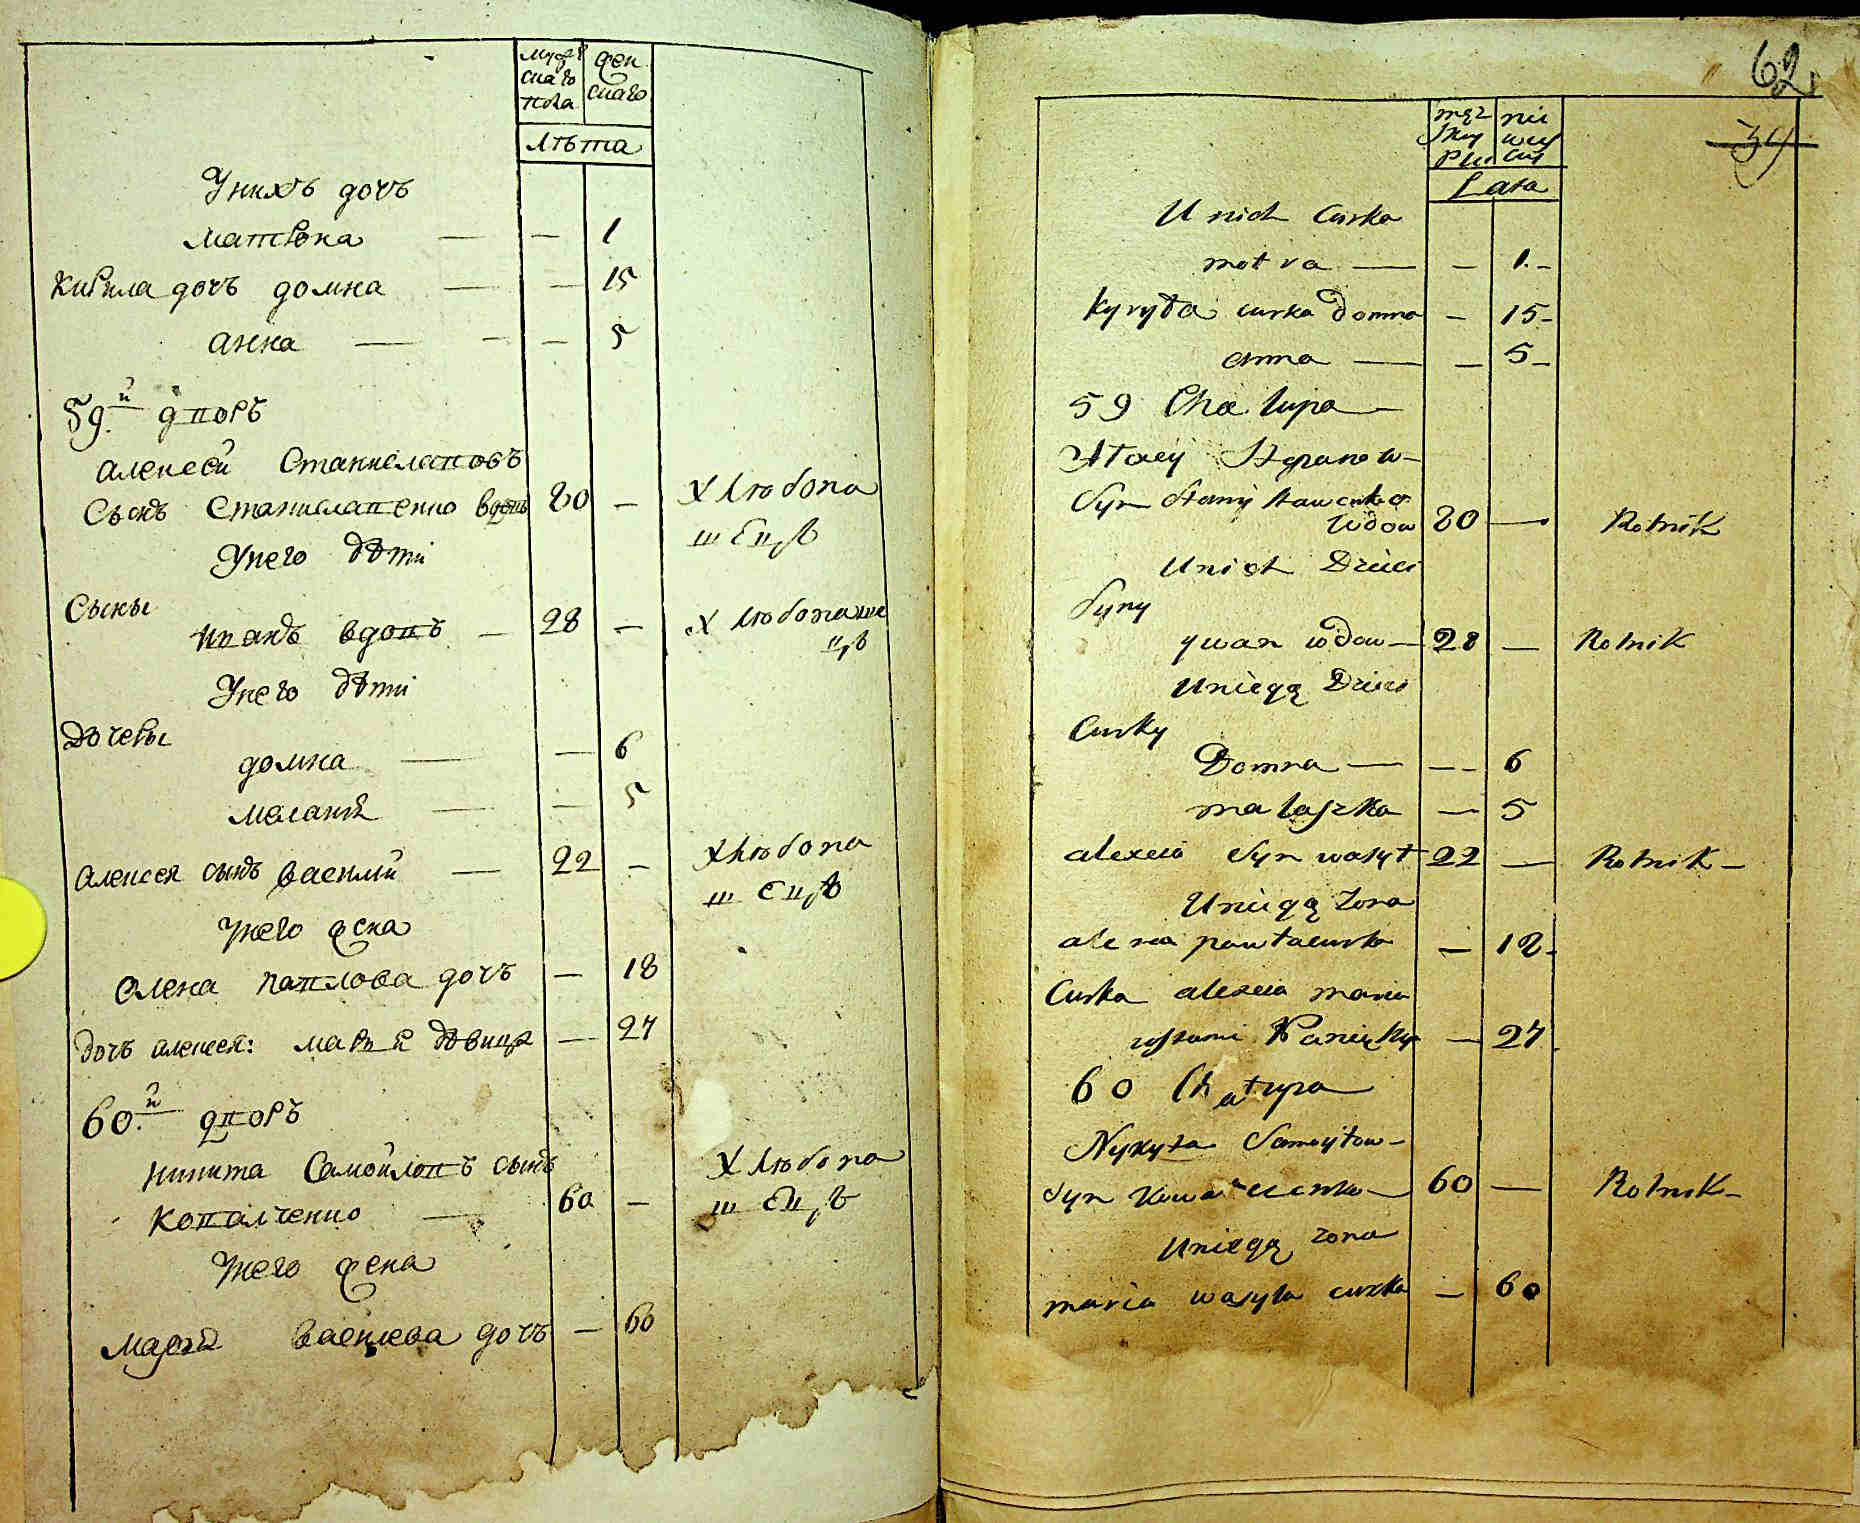 мужескаго пола
женскаго
лѣта
Унихъ дочъ
матрона — — 1
Кирила дочъ домна — — 15
анна — — 5
59.й дворъ
алексей Станиславовъ
Сынъ Станиславенко вдовъ 80 —
хлебопашецъ
Унего дѣти
Сыны
иванъ вдовъ — 28 — хлебопашецъ
Унего дѣти
Дочеры
домна — — 6
маланя — — 5
алексея сынъ василий — 22 — хлебопашецъ
Унего жена
олена павлова дочъ — 18
дочъ алексея: мария дѣвица — 27
60.й дворъ
никита Самойловъ сынъ
коваленко — 60 — хлебопашецъ
Унего жена
мария василева дочъ — 60
62
39
męz
skey
Płci
niewies
ciey
Lata
Unich Curka
motra — — 1.-
kyryła curka Domna — 15-
anna — — 5-
59 Chałupa —
Stepanow-
Syn Stanisławenko
wdow 80 — Rolnik
Unich Dzieci
Syny
ywan wdow — 28 — Rolnik
Uniegą Dzieci
Curky
Domna — — 6
małaszka — 5
alexeia Syn wasył 22 — Rolnik —
Uniegą żona
alena pawła curka — 18-
Curka alexeia maria
— 27
60 Chałupa
Nykyta Samoyłow-
syn Kowalczenko — 60 — Rolnik —
Uniegą żona
maria wasyla curka — 60